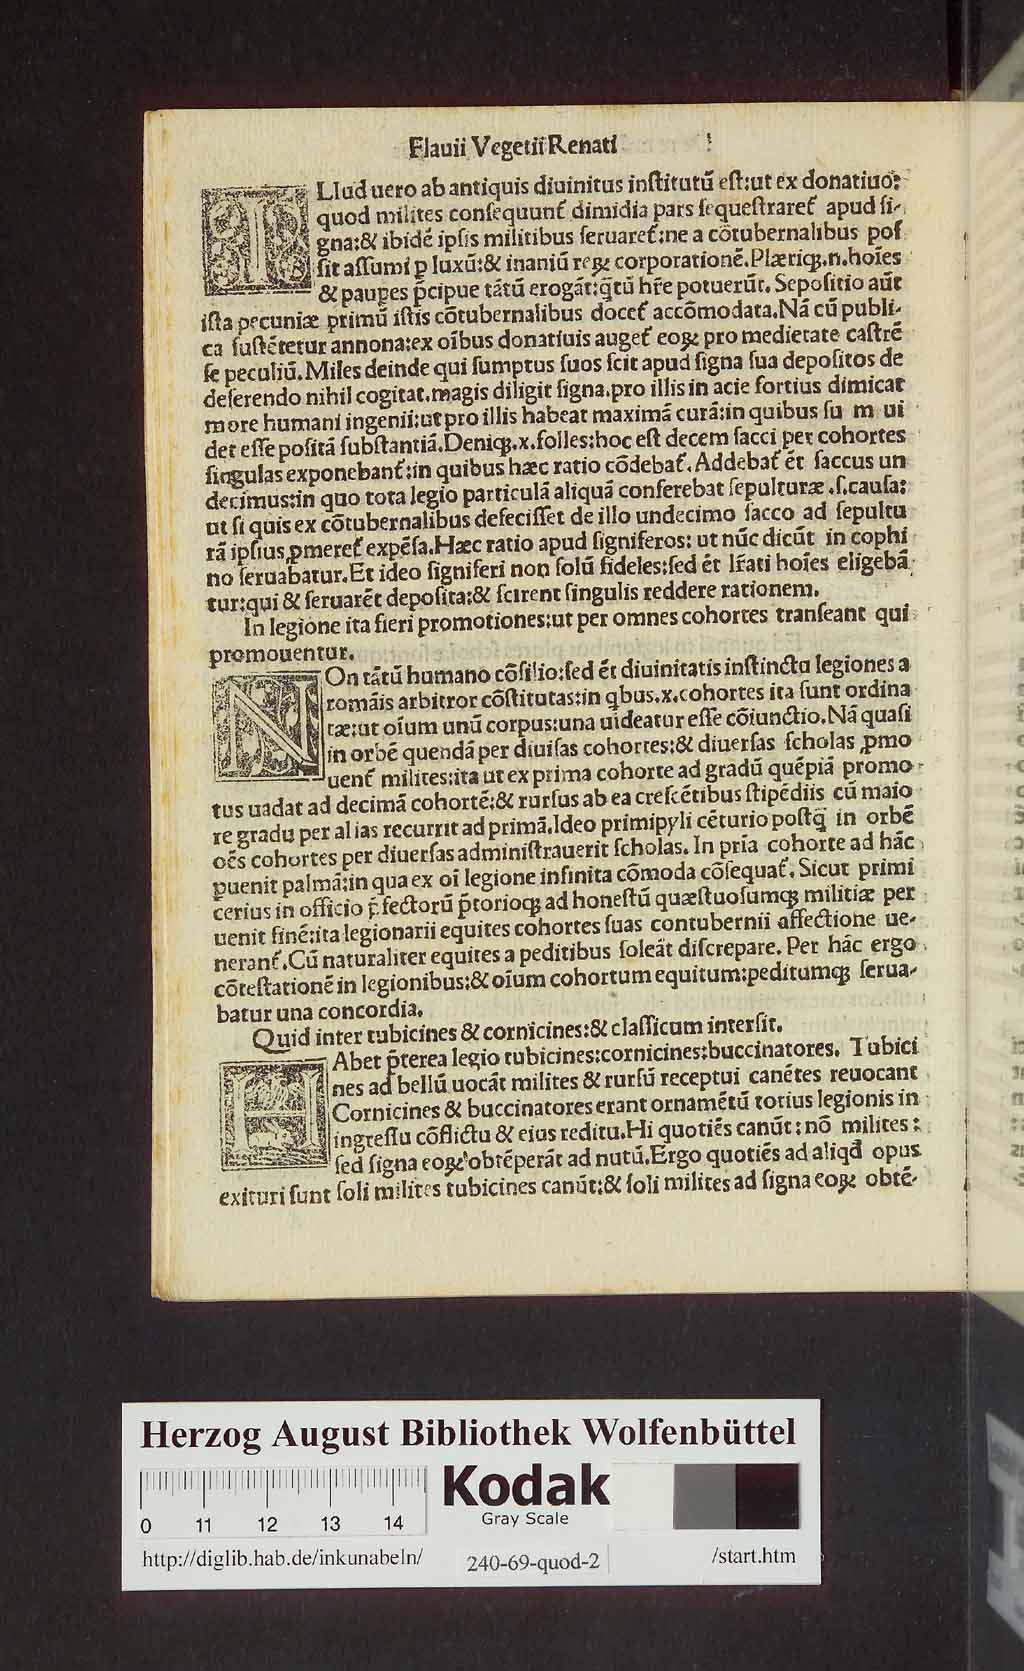 Flauii Vegetii Renati
ILlud uero ab antiquis diuinitus inſtitutũ eſt:ut ex donatiuo:
quod milites conſequunt᷑ dimidia pars ſequeſtraret᷑ apud ſi-
gna:& ibidẽ ipſis militibus ſeruaret᷑:ne a cõtubernalibus poſ
ſit aſſumi ꝑ luxũ:& inaniũ reꝝ corporationẽ.Plæriqꝫ.n.hoĩes
& pauꝑes p̃cipue tãtũ erogãt:q̃tũ hr̃e potuerũt. Sepoſitio aũt
iſta pecuniæ primũ iſtis cõtubernalibus docet᷑ accõmodata.Nã cũ publi-
ca ſuſtẽtetur annona:ex oĩbus donatiuis auget᷑ eoꝝ pro medietate caſtrẽ
ſe peculiũ.Miles deinde qui ſumptus ſuos ſcit apud ſigna ſua depoſitos de
deſerendo nihil cogitat.magis diligit ſigna.pro illis in acie fortius dimicat
more humani ingenii:ut pro illis habeat maximã curã:in quibus ſu m ui
det eſſe poſitã ſubſtantiã.Deniqꝫ.x.folles:hoc eſt decem ſacci per cohortes
ſingulas exponebant᷑:in quibus hæc ratio cõdebat᷑. Addebat᷑ ẽt ſaccus un
decimus:in quo tota legio particulã aliquã conferebat ſepulturæ .ſ.cauſa:
ut ſi quis ex cõtubernalibus defeciſſet de illo undecimo ſacco ad ſepultu
rã ipſius ꝓmeret᷑ expẽſa.Hæc ratio apud ſigniferos: ut nũc dicũt in cophi
no ſeruabatur.Et ideo ſigniferi non ſolũ fideles:ſed ẽt lr̃ati hoĩes eligebã
tur:qui & ſeruarẽt depoſita:& ſcirent ſingulis reddere rationem.
In legione ita fieri promotiones:ut per omnes cohortes tranſeant qui
promouentur.
NOn tãtũ humano cõſilio:ſed ẽt diuinitatis inſtinctu legiones a
romãis arbitror cõſtitutas:in qbus.x.cohortes ita ſunt ordina
tæ:ut oĩum unũ corpus:una uideatur eſſe cõiunctio.Nã quaſi
in orbẽ quendã per diuiſas cohortes:& diuerſas ſcholas ꝓmo
uent᷑ milites:ita ut ex prima cohorte ad gradũ quẽpiã promo
tus uadat ad decimã cohortẽ:& rurſus ab ea creſcẽtibus ſtipẽdiis cũ maio
re gradu per alias recurrit ad primã.Ideo primipyli cẽturio poſtq̃ in orbẽ
oẽs cohortes per diuerſas adminiſtrauerit ſcholas. In pr̃ia cohorte ad hãc
ꝑuenit palmã:in qua ex oĩ legione infinita cõmoda cõſequat᷑. Sicut primi
cerius in officio p̃fectorũ p̃torioqꝫ ad honeſtũ quæſtuoſumqꝫ militiæ per
uenit finẽ:ita legionarii equites cohortes ſuas contubernii affectione ue-
nerant᷑.Cũ naturaliter equites a peditibus ſoleãt diſcrepare. Per hãc ergo
cõteſtationẽ in legionibus:& oĩum cohortum equitum:peditumqꝫ ſerua-
batur una concordia.
Quid inter tubicines & cornicines:& claſſicum interſit.
HAbet p̃terea legio tubicines:cornicines:buccinatores. Tubici
nes ad bellũ uocãt milites & rurſũ receptui canẽtes reuocant
Cornicines & buccinatores erant ornamẽtũ totius legionis in
ingreſſu cõflictu & eius reditu.Hi quotiẽs canũt: nõ milites:
ſed ſigna eoꝝ obtẽperãt ad nutũ.Ergo quotiẽs ad aliqd̃ opus
exituri ſunt ſoli milites tubicines canũt:& ſoli milites ad ſigna eoꝝ obtẽ-
Herzog August Bibliothek Wolfenbüttel
0 11 12 13 14
Kodak
Gray Scale
http://diglib.hab.de/inkunabeln/
240-69-quod-2
/start.htm